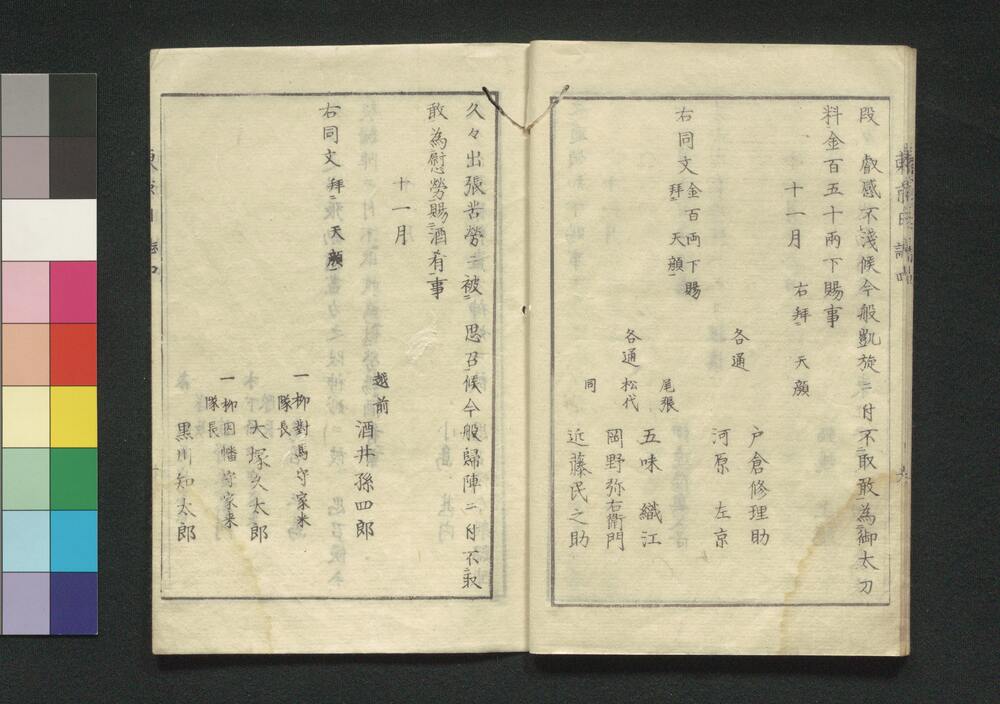 段　叡感不浅候今般凱旋ニ付不取敢為御太刀
料金百五十両下賜事
十一月　右拝　天顔
戸倉修理助
各通
河原　左京
右同文金百両下賜
拝　天顔
尾張
五味　織江
各通
松代
岡野弥右衛門
同
近藤民之助
久々出張苦労ニ被　思召候今般帰陣ニ付不取
敢為慰労賜酒肴事
十一月
越前
酒井孫四郎
右同文　拝　天顔
一柳対馬守家来
隊長
大塚久太郎
一柳因幡守家来
隊長
黒川知太郎